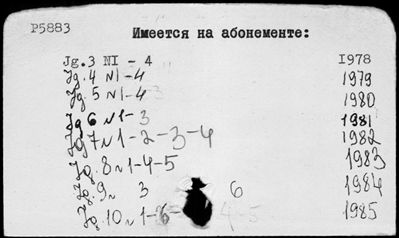 P5883
Имеется на абонементе:
Jg.3 NI - 4 I978
Jg.4 N1-4 1979
Jg.5 N1-4 1980
Jg 6 N1-3 1981
Jg 7 N1-2-3-4 1982
Jg. 8 N1-4-5 1983
Jg. 9 N 3 6 1984
Jg. 10 N 1-6- 4-5 1985